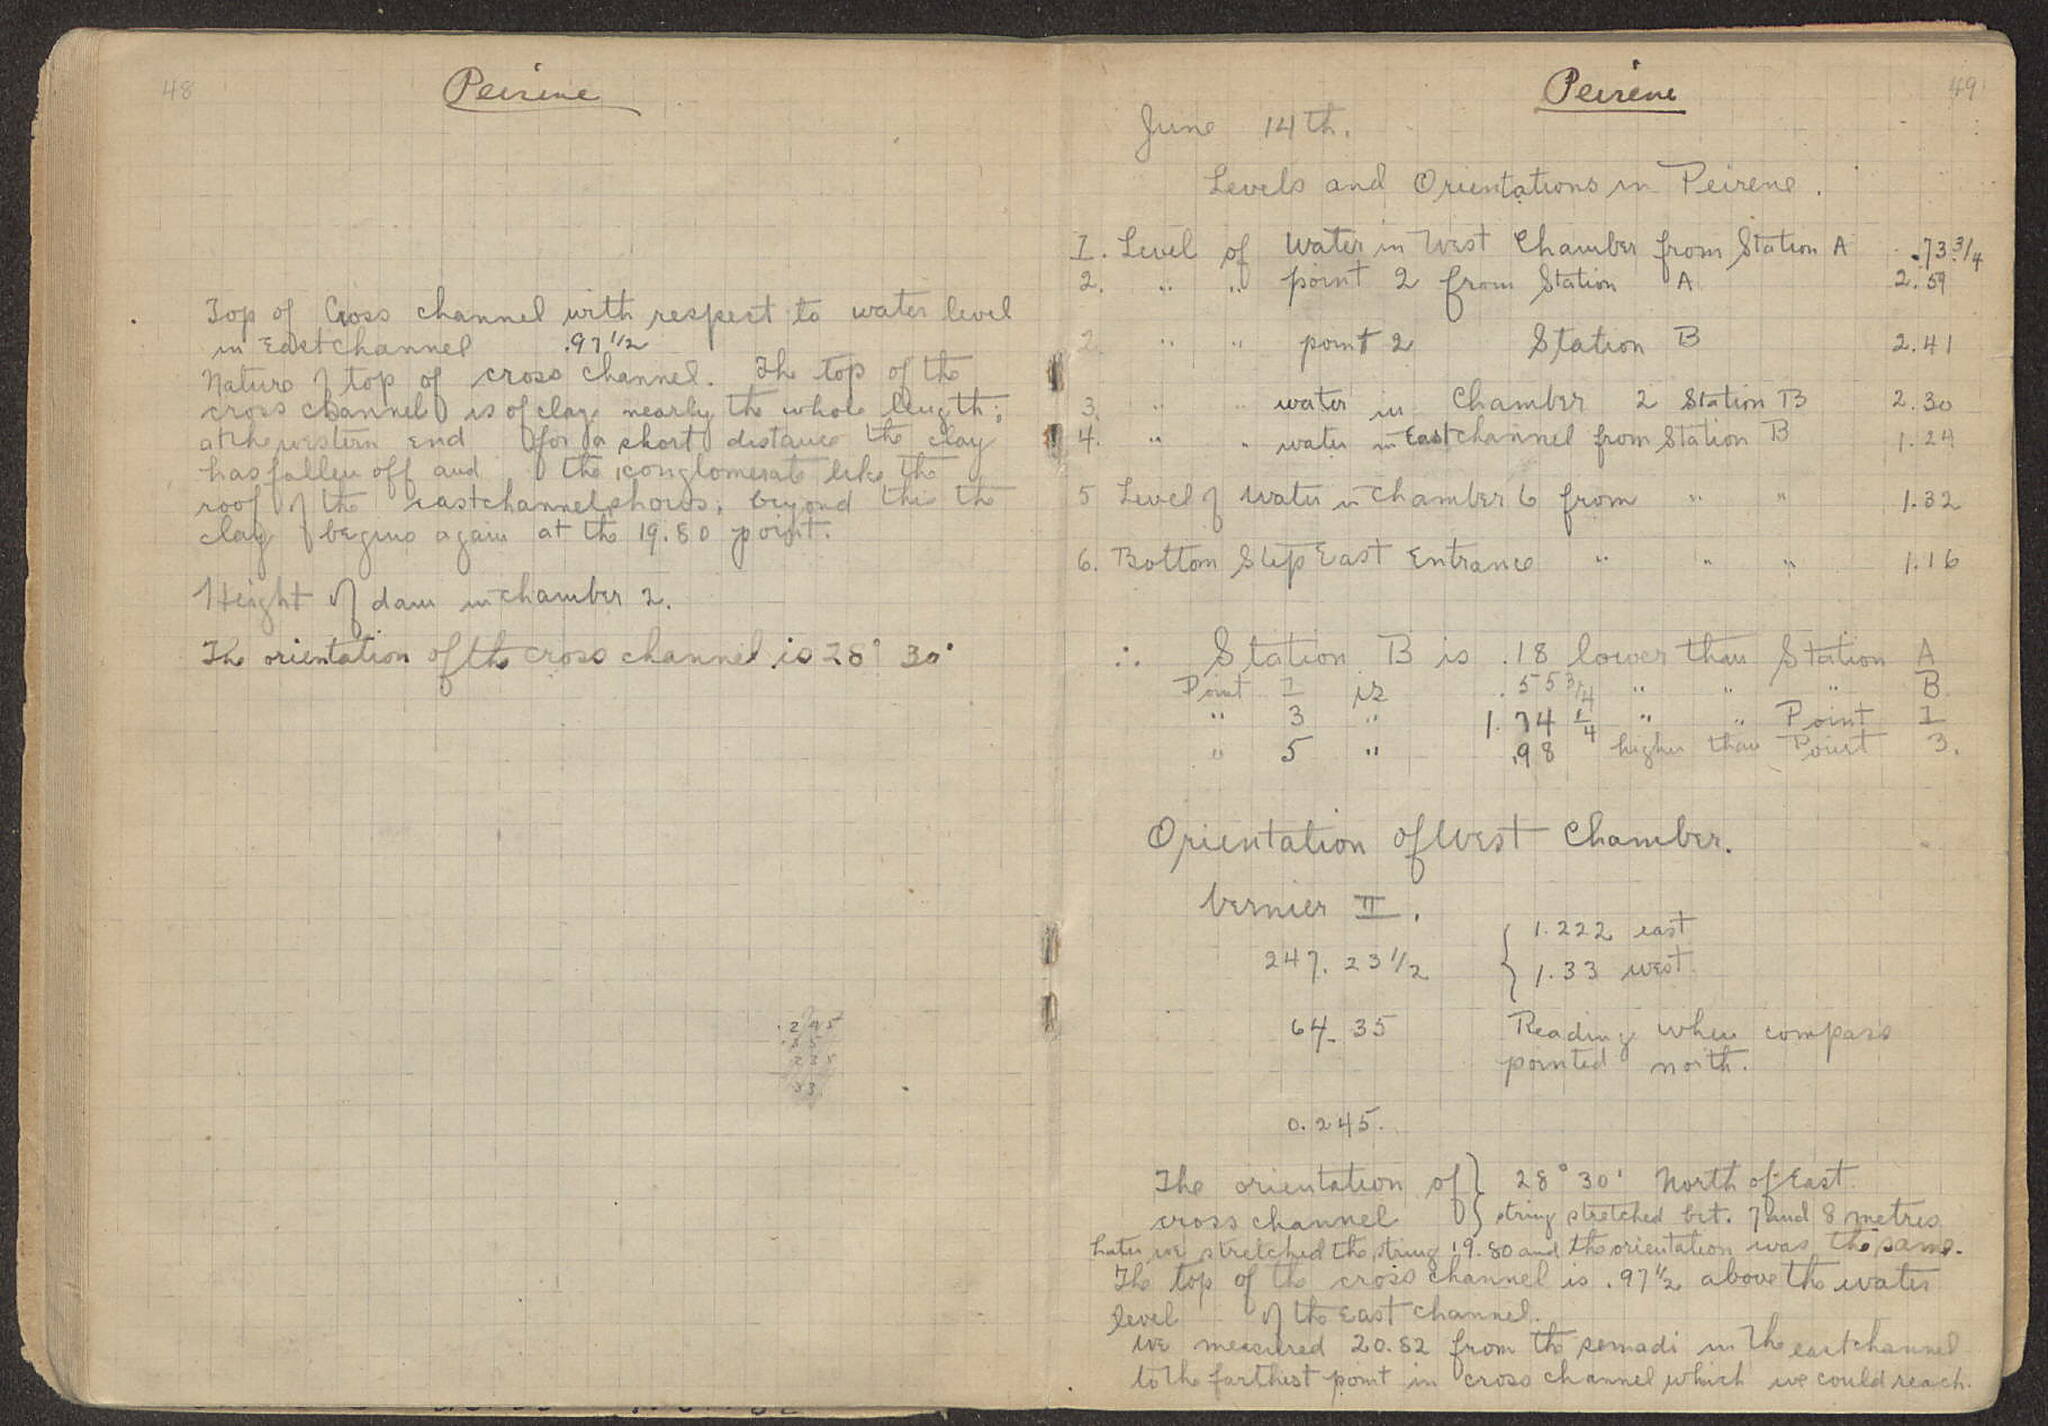 48
Peirene
Top of Cross channel with respect to water level
in East channel .97 1/2
Nature of top of cross channel. The top of the
cross channel is of clay nearly the whole length;
at the western end for a short distance the clay
has fallen off and the conglomerate like the
roof of the east channel shows, beyond this the
clay begins again at the 19.80 point.
Height of dam in chamber 2.
The orientation of the cross channel is 28° 30'
Peirene
49
June 14th.
Levels and Orientations in Peirene.
1. Level of Water in West Chamber from Station A .73 3/4
2. " " point 2 from Station A 2.59
2. " " point 2 Station B 2.41
3. " " water in Chamber 2 Station B 2.30
4. " " water in East channel from Station B 1.24
5 Level of Water in Chamber 6 from " " 1.32
6. Bottom Step East Entrance " " " 1.16
∴ Station B is .18 lower than Station A
Point 1 is .55 3/4 " " " B
" 3 " 1.74 1/4 " " Point 1
" 5 " .98 higher than Point 3.
Orientation of West Chamber.
Vernier II.
247. 23 1/2 { 1.222 east
1.33 west
64. 35 Reading when compass
pointed north.
0.245.
The orientation of } 28° 30' North of East
cross channel } string stretched bet. 7 and 8 metres
Later we stretched the string 19.80 and the orientation was the same.
The top of the cross channel is .97 1/2 above the water
level of the East channel.
We measured 20.82 from the semadi in the east channel
to the farthest point in cross channel which we could reach.